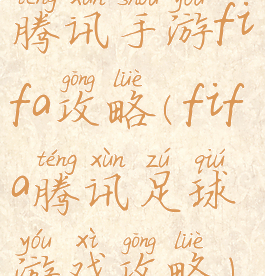 téng xùn shǒu yóu
腾讯手游fi
gōng lüè
fa攻略(fif
téng xùn zú qiú
a腾讯足球
yóu xì gōng lüè
游戏攻略)